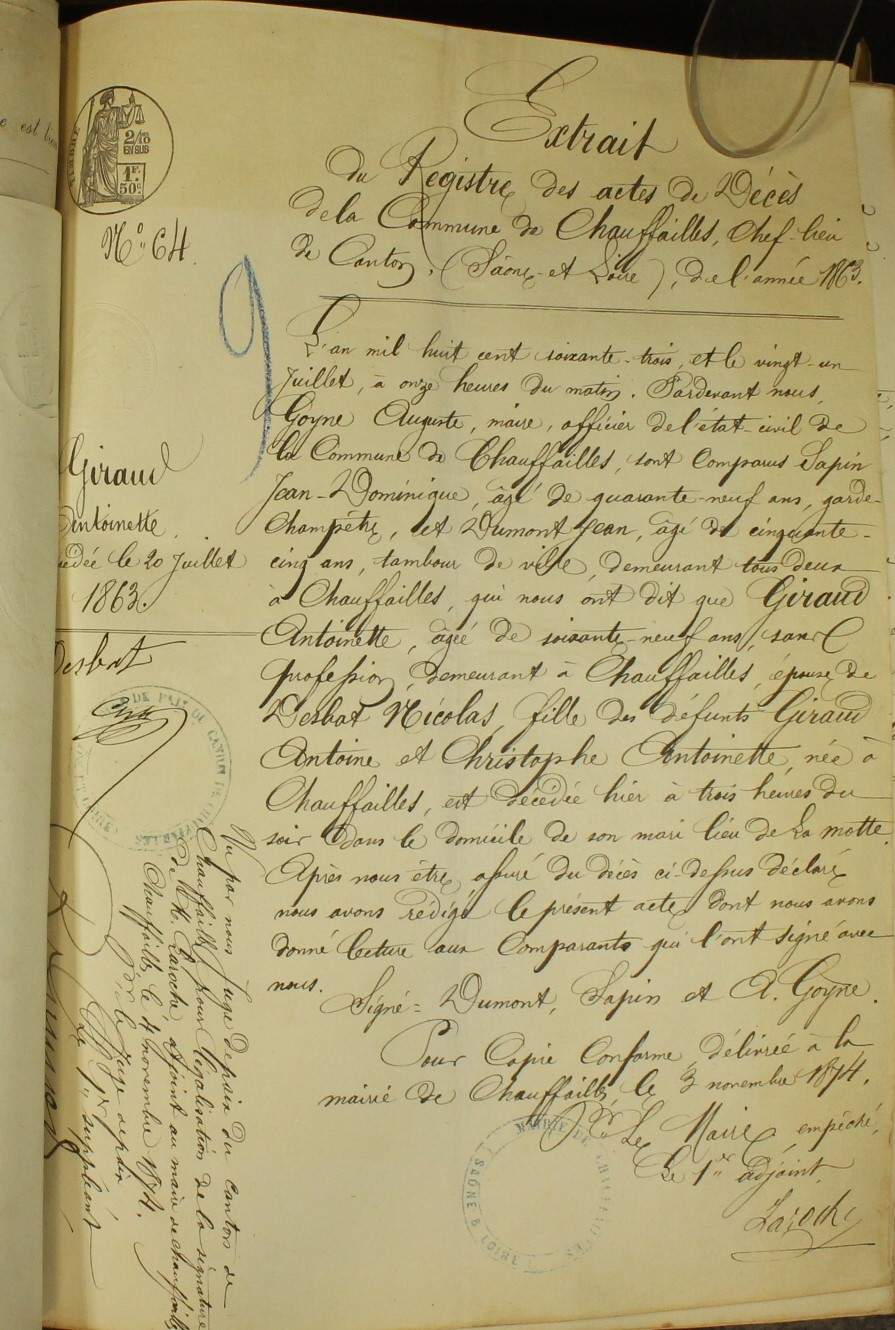 Extrait
du Registre des actes de Décès
de la Commune de Chauffailles, chef-lieu
de Canton, (Saône-et Loire), de l'année 1863.
TIMBRE
2/10
EN SUS
1F.
50c.
No. 64.
Giraud
Antoinette
décédée le 20 Juillet
1863.
Desbat
L'an mil huit cent soixante-trois, et le vingt-un
Juillet, à onze heures du matin. Pardevant nous,
Goyne Auguste, maire, officier de l'état-civil de
la Commune de Chauffailles, sont Comparus Sapin
Jean-Dominique, âgé de quarante-neuf ans, garde-
Champêtre, et Dumont Jean, âgé de cinquante-
cinq ans, tambour de ville, demeurant tous deux
à Chauffailles, qui nous ont dit que Giraud
Antoinette, âgée de soixante-neuf ans, sans
profession, demeurant à Chauffailles, épouse de
Desbat Nicolas, fille des défunts Giraud
Antoine et Christophe Antoinette, née à
Chauffailles, est décédée hier à trois heures du
soir dans le domicile de son mari lieu de La motte.
Après nous être assuré du décès ci-dessus déclaré
nous avons rédigé le présent acte dont nous avons
donné lecture aux Comparants qui l'ont signé avec
nous.
Signé = Dumont, Sapin et A. Goyne.
Pour Copie Conforme, délivrée à la
mairie de Chauffailles, le 3 novembre 1874.
Pr. Le Maire empêché,
Le 1er adjoint,
Laroche
MAIRIE DE CHAUFFAILLES
( SAÔNE & LOIRE )
DE PAIX DU CANTON DE CHAUFFAILLES
Vu par nous Juge de paix du canton de
Chauffailles pour légalisation de la signature
de M. Laroche adjoint au maire de Chauffailles
Chauffailles le 4 novembre 1874.
Por le Juge de paix
Le 1er suppléant